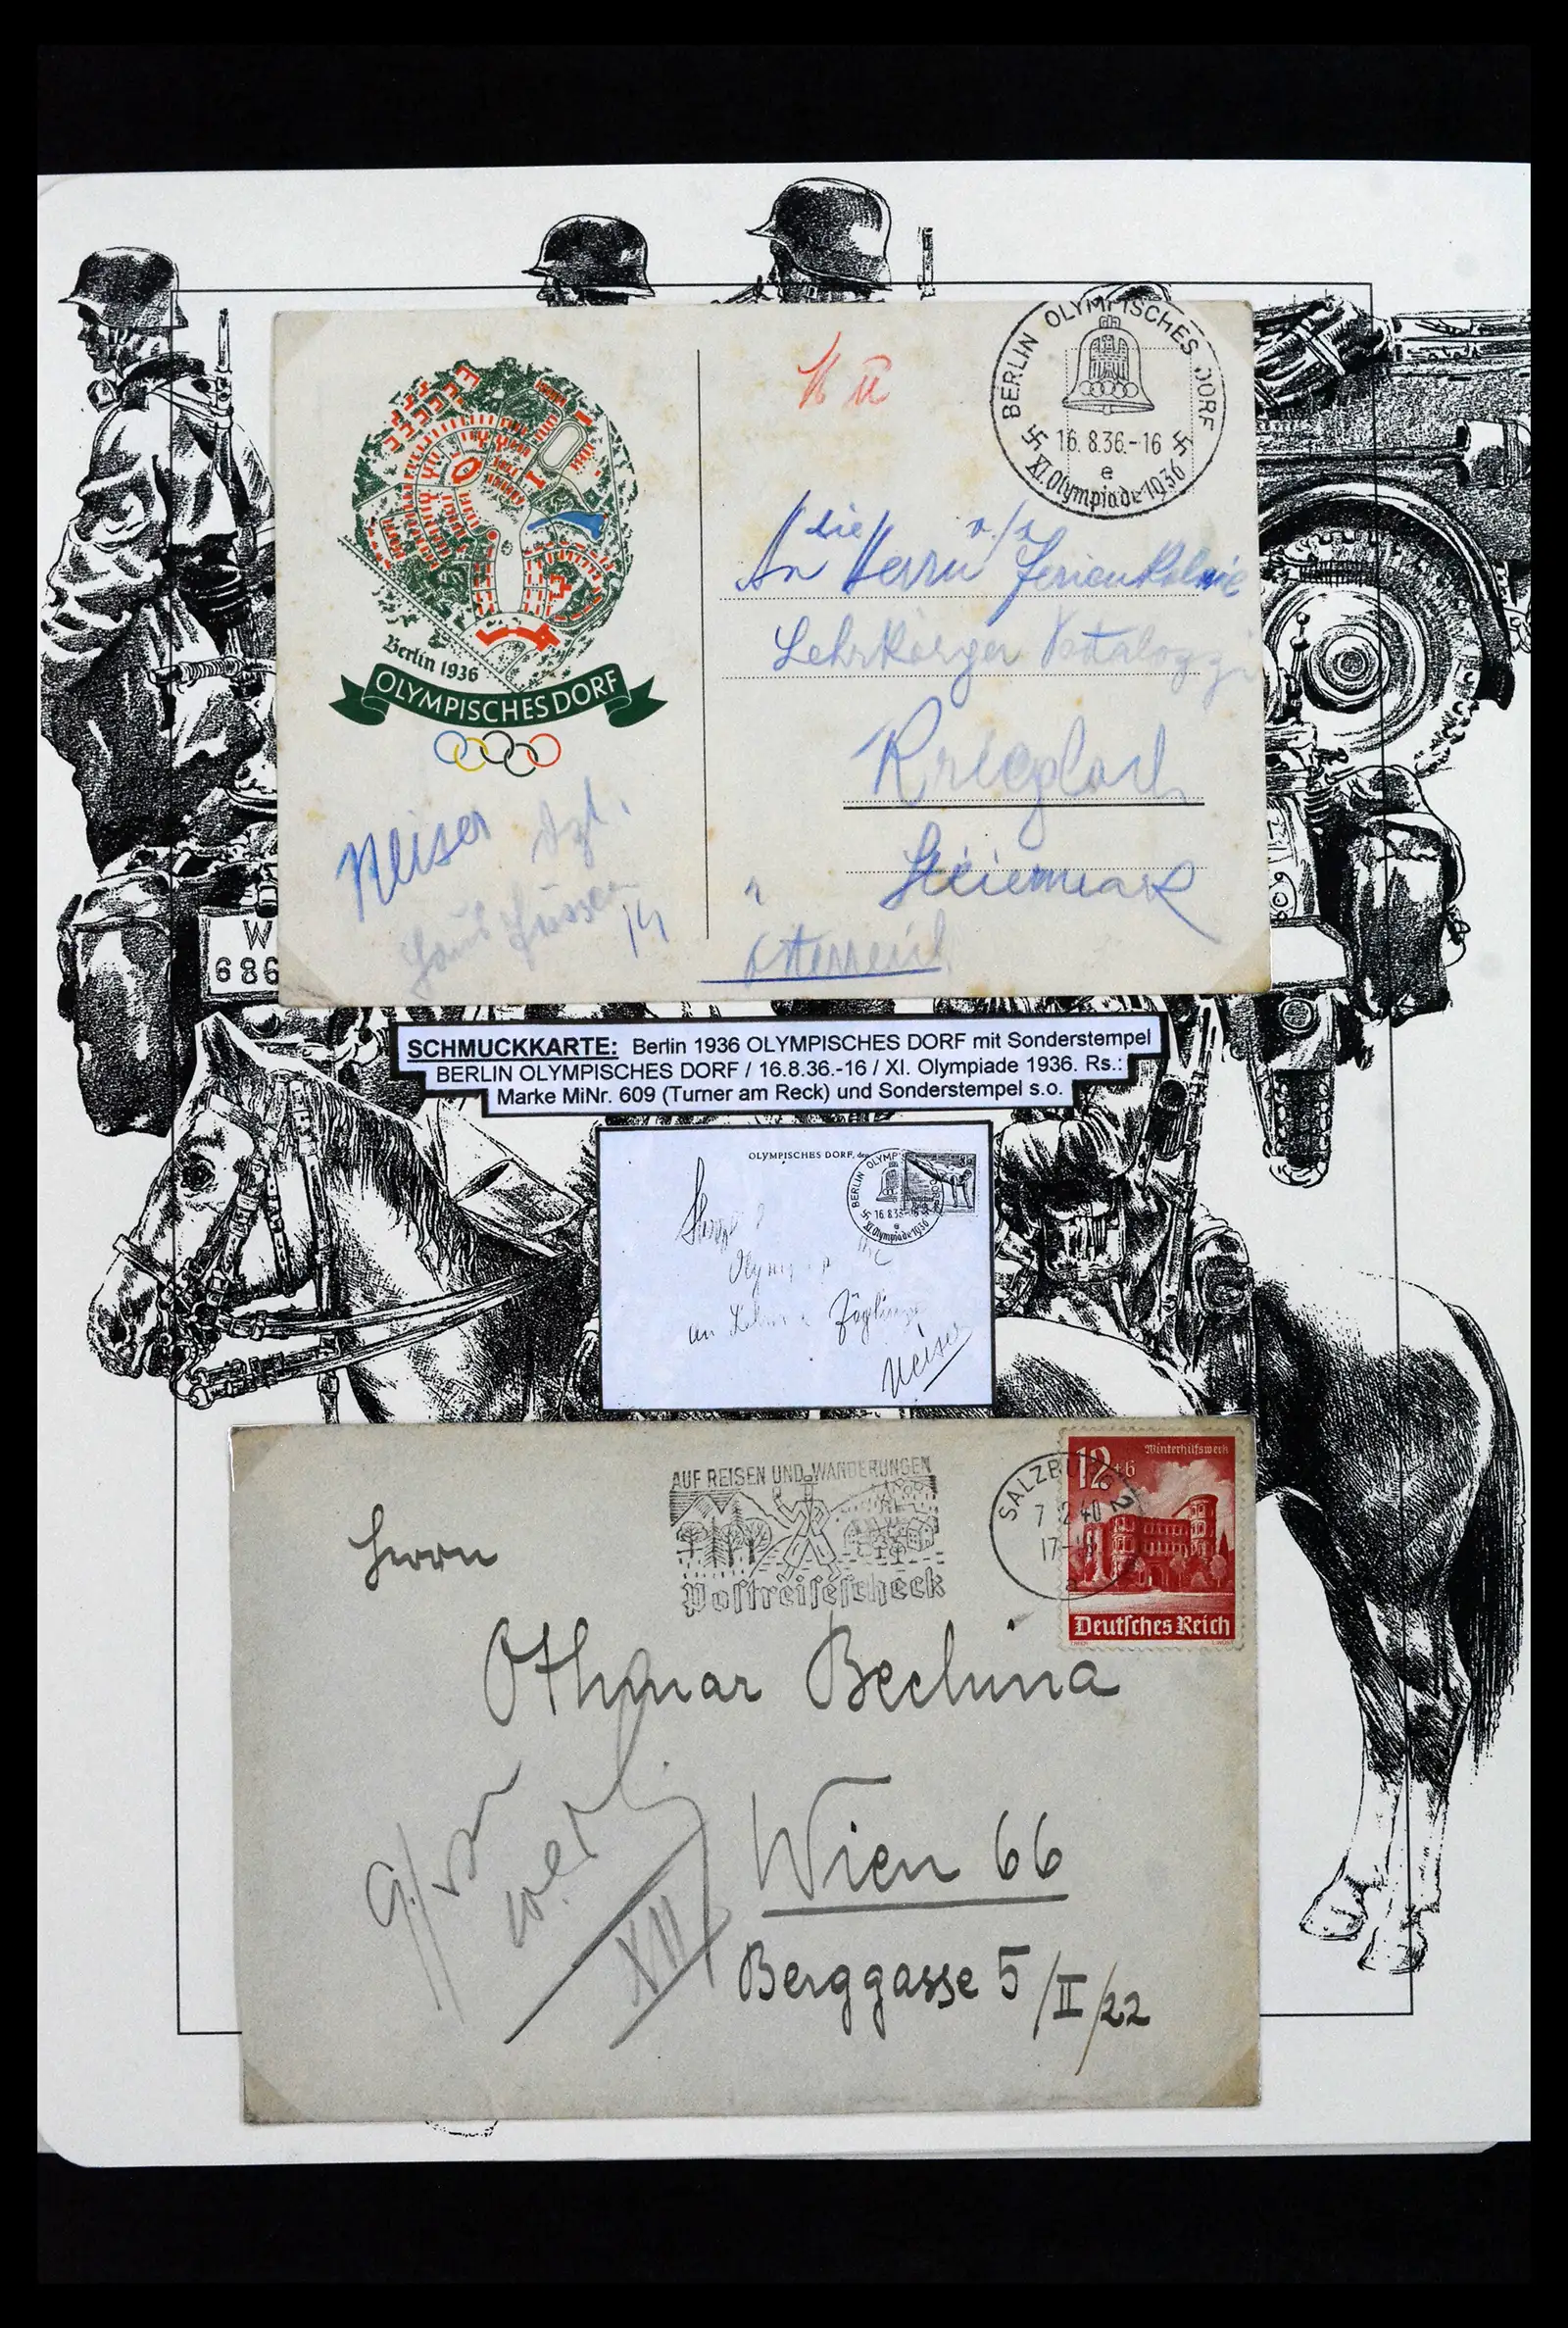 Berlin 1936
OLYMPISCHES DORF
BERLIN OLYMPISCHES DORF
16.8.36.-16
e
XI. Olympiade 1936
An die Herrn
Ferienkolonie
Lehrkörper
Krieglach
Steiermark
Österreich
Neiser
W
686
SCHMUCKKARTE: Berlin 1936 OLYMPISCHES DORF mit Sonderstempel
BERLIN OLYMPISCHES DORF / 16.8.36.-16 / XI. Olympiade 1936. Rs.:
Marke MiNr. 609 (Turner am Reck) und Sonderstempel s.o.
OLYMPISCHES DORF, den
BERLIN OLYMP DORF
16.8.36
e
XI. Olympiade 1936
an
Neiser
AUF REISEN UND WANDERUNGEN
Postreisescheck
SALZBURG 2
7.2.40
17-
a
12+6
Winterhilfswerk
Deutsches Reich
Herrn
Othmar Bechina
Wien 66
Berggasse 5/II/22
XII